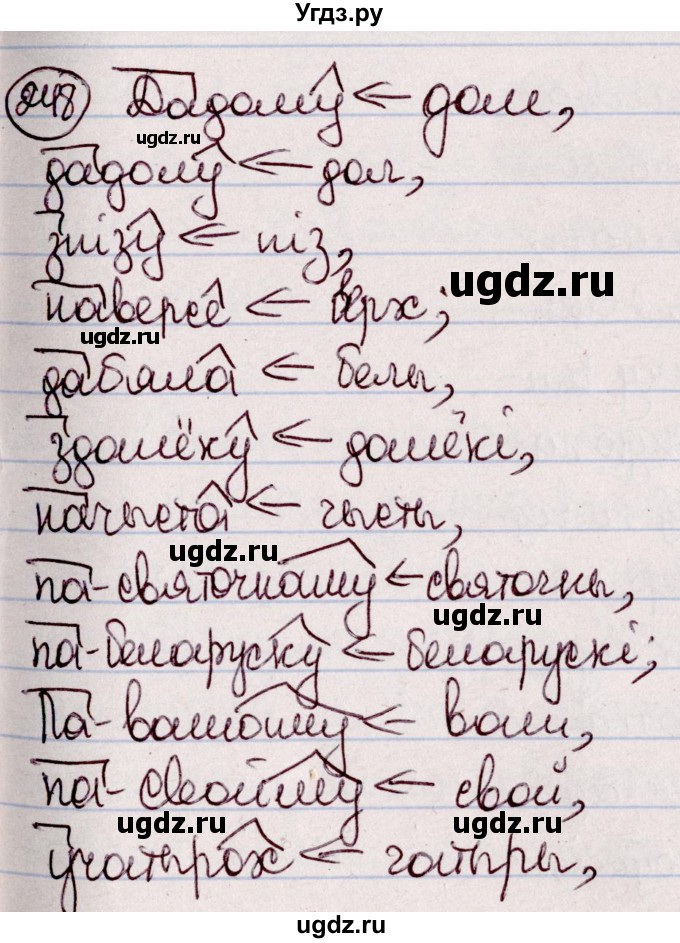 Угдз.ру
248 Дадому ← дом,
ugdz.ru
дадолу ← дол,
знізу ← ніз,
ugdz.ru
наверсе ← верх;
ugdz.ru
дабяла ← белы,
здалёку ← далёкі,
начыста ← чысты,
ugdz.ru
па-святочнаму ← святочны,
ugdz.ru
па-беларуску ← беларускі;
Па-вашаму ← ваш,
па-свойму ← свой,
ugdz.ru ugdz.ru
учатырох ← чатыры,
ugdz.ru